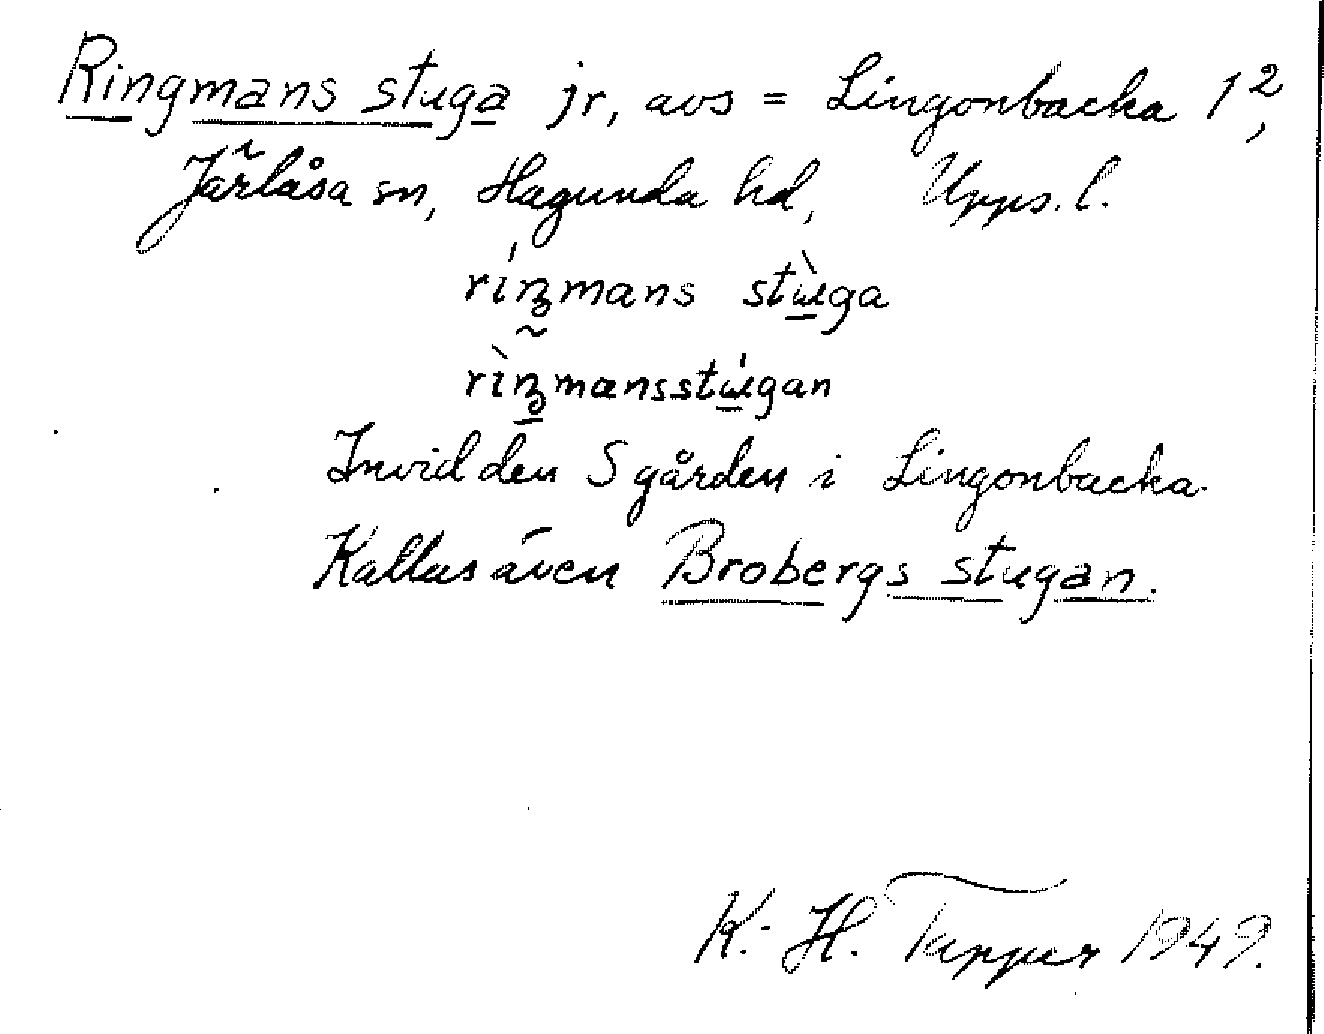 Ringmans stuga jr, avs = Lingonbacka 1²,
Järlåsa sn, Hagunda hd, Upps. l.
ríŋmans stùga
rìŋmansstúgan
Invid den S gården i Lingonbacka.
Kallas även Brobergs stugan.
K.-H. Tapper 1949.